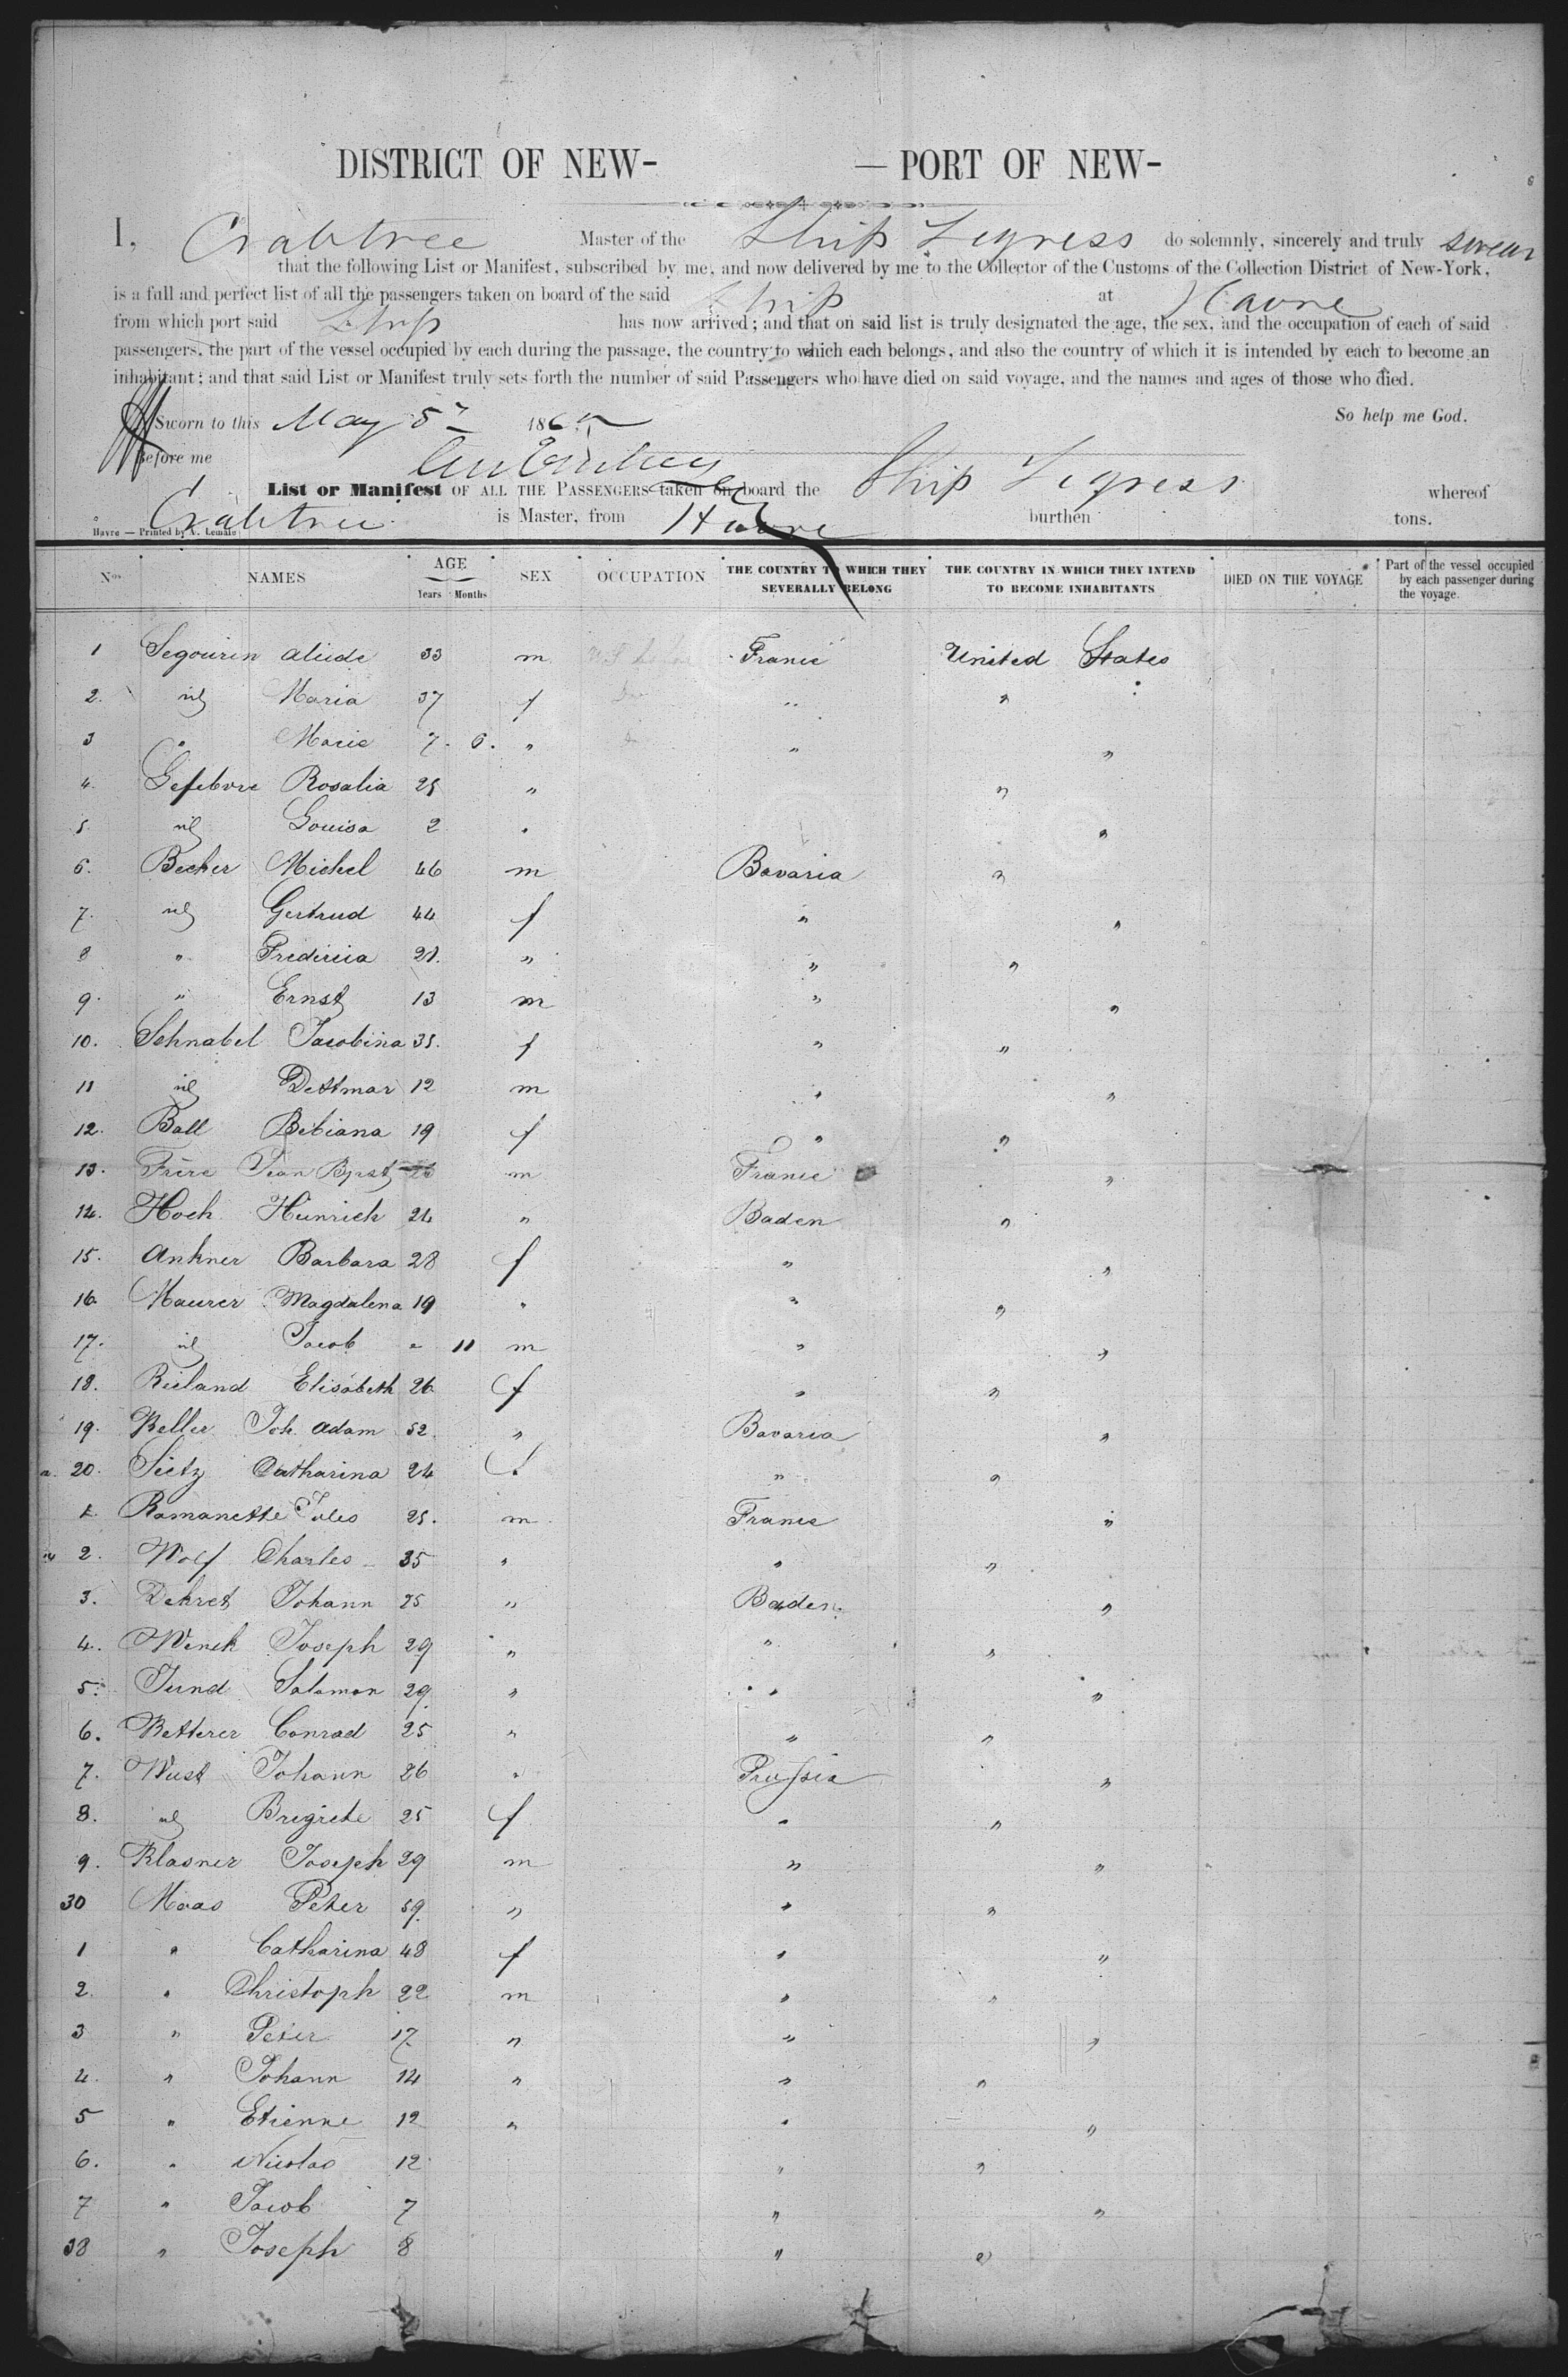 DISTRICT OF NEW- — PORT OF NEW-
I, Crabtree Master of the Ship Tigress do solemnly, sincerely and truly swear
that the following List or Manifest, subscribed by me, and now delivered by me to the Collector of the Customs of the Collection District of New-York,
is a full and perfect list of all the passengers taken on board of the said Ship at Havre
from which port said Ship has now arrived; and that on said list is truly designated the age, the sex, and the occupation of each of said
passengers, the part of the vessel occupied by each during the passage, the country to which each belongs, and also the country of which it is intended by each to become an
inhabitant; and that said List or Manifest truly sets forth the number of said Passengers who have died on said voyage, and the names and ages of those who died.
Sworn to this May 5 1865 So help me God.
Before me
List or Manifest OF ALL THE PASSENGERS taken on board the Ship Tigress whereof
Crabtree is Master, from Havre burthen tons.
Havre — Printed by A. Lemale
Nos. NAMES AGE Years Months SEX OCCUPATION THE COUNTRY TO WHICH THEY SEVERALLY BELONG THE COUNTRY IN WHICH THEY INTEND TO BECOME INHABITANTS DIED ON THE VOYAGE Part of the vessel occupied by each passenger during the voyage.
1 Segourin alcide 33 m France United States
2. id Maria 37 f " "
3 " Marie 7. 6. " " "
4. Lefebvre Rosalia 25 " "
5. id Louisa 2 " "
6. Becker Michel 46 m Bavaria "
7. id Gertrud 44 f " "
8 " Fredericia 21. " " "
9. " Ernst 13 m " "
10. Schnabel Jacobina 35. f " "
11 id Dettmar 12 m " "
12. Ball Bibiana 19 f " "
13. Frère Jean Bpst 26 m France "
14. Hoch Heinrich 24 " Baden "
15. Ankner Barbara 28 f " "
16. Maurer Magdalena 19 " " "
17. id Jacob " 11 m " "
18. Rieland Elisabeth 26 f " "
19. Keller Joh. Adam 52. " Bavaria "
20. Sietz Catharina 24 f " "
1. Romanette Jules 25. m France "
2. Wolf Charles 35 " " "
3. Dekret Johann 25 " Baden "
4. Wenck Joseph 29 " " "
5. Jund Salomon 29. " " "
6. Betterer Conrad 25 " " "
7. Wust Johann 26 " Prussia "
8. id Bregitte 25 f " "
9. Klasner Joseph 29 m " "
30 Maas Peter 59. " " "
1 " Catharina 48 f " "
2. " Christoph 22 m " "
3 " Peter 17 " " "
4. " Johann 14 " " "
5 " Etienne 12 " " "
6. " Nicolas 12 " "
7 " Jacob 7 " "
38 " Joseph 8 " "